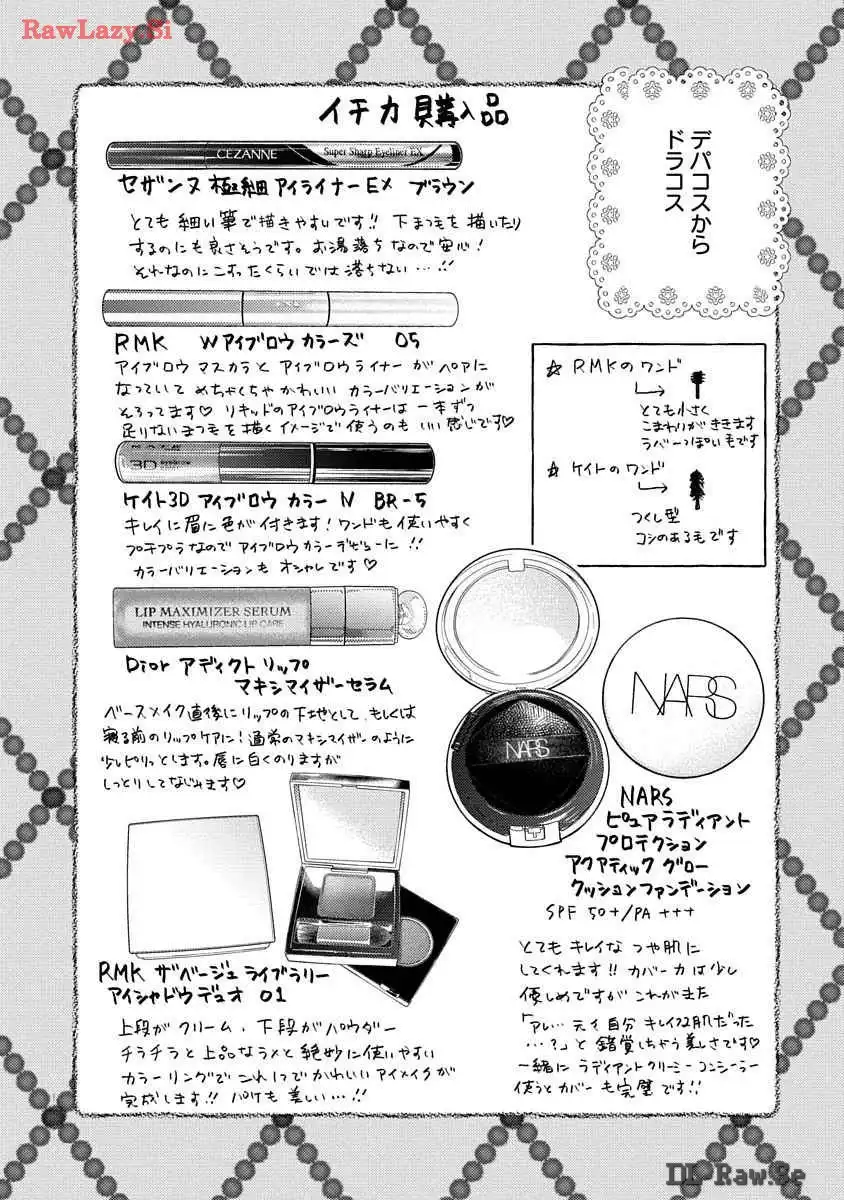 RawLazy.Si
デパコスから
ドラコス
イチカ購入品
CEZANNE Super Sharp Eyeliner EX
セザンヌ 極細アイライナーEX ブラウン
とても細い筆で描きやすいです!! 下まつ毛を描いたり
するのにも良さそうです。お湯落ちなので安心!
それなのにこすったくらいでは落ちない…!!
RMK Wアイブロウカラーズ 05
アイブロウマスカラとアイブロウライナーがペアに
なっていてめちゃくちゃかわいいカラーバリエーションが
そろってます♡ リキッドのアイブロウライナーは一本ずつ
足りないまつ毛を描くイメージで使うのもいい感じです♡
3D
ケイト3Dアイブロウカラー N BR-5
キレイに眉に色が付きます! ワンドも使いやすく
プチプラなのでアイブロウカラーデビューに!!
カラーバリエーションもオシャレです♡
☆ RMKのワンド
とても小さく
こまわりがききます
ラバーっぽい毛です
☆ ケイトのワンド
つくし型
コシのある毛です
LIP MAXIMIZER SERUM
INTENSE HYALURONIC LIP CARE
Dior アディクトリップ
マキシマイザーセラム
ベースメイク直後にリップの下地として、もしくは
寝る前のリップケアに! 通常のマキシマイザーのように
少しピリっとします。唇に白くのりますが
しっとりしてなじみます♡
NARS
NARS
NARS
ピュアラディアント
プロテクション
アクアティック グロー
クッションファンデーション
SPF 50+/PA+++
とてもキレイなつや肌に
してくれます!! カバー力は少し
優しめですがこれがまた
「アレ…元々自分キレイな肌だった
…?」と錯覚しちゃう美しさです♡
一緒にラディアントクリーミーコンシーラー
使うとカバーも完璧です!!
RMK ザベージュライブラリー
アイシャドウデュオ 01
上段がクリーム、下段がパウダー
チラチラと上品なラメと絶妙に使いやすい
カラーリングでこれ1つでかわいいアイメイクが
完成します!! パケも美しい…!!
DL-Raw.Se